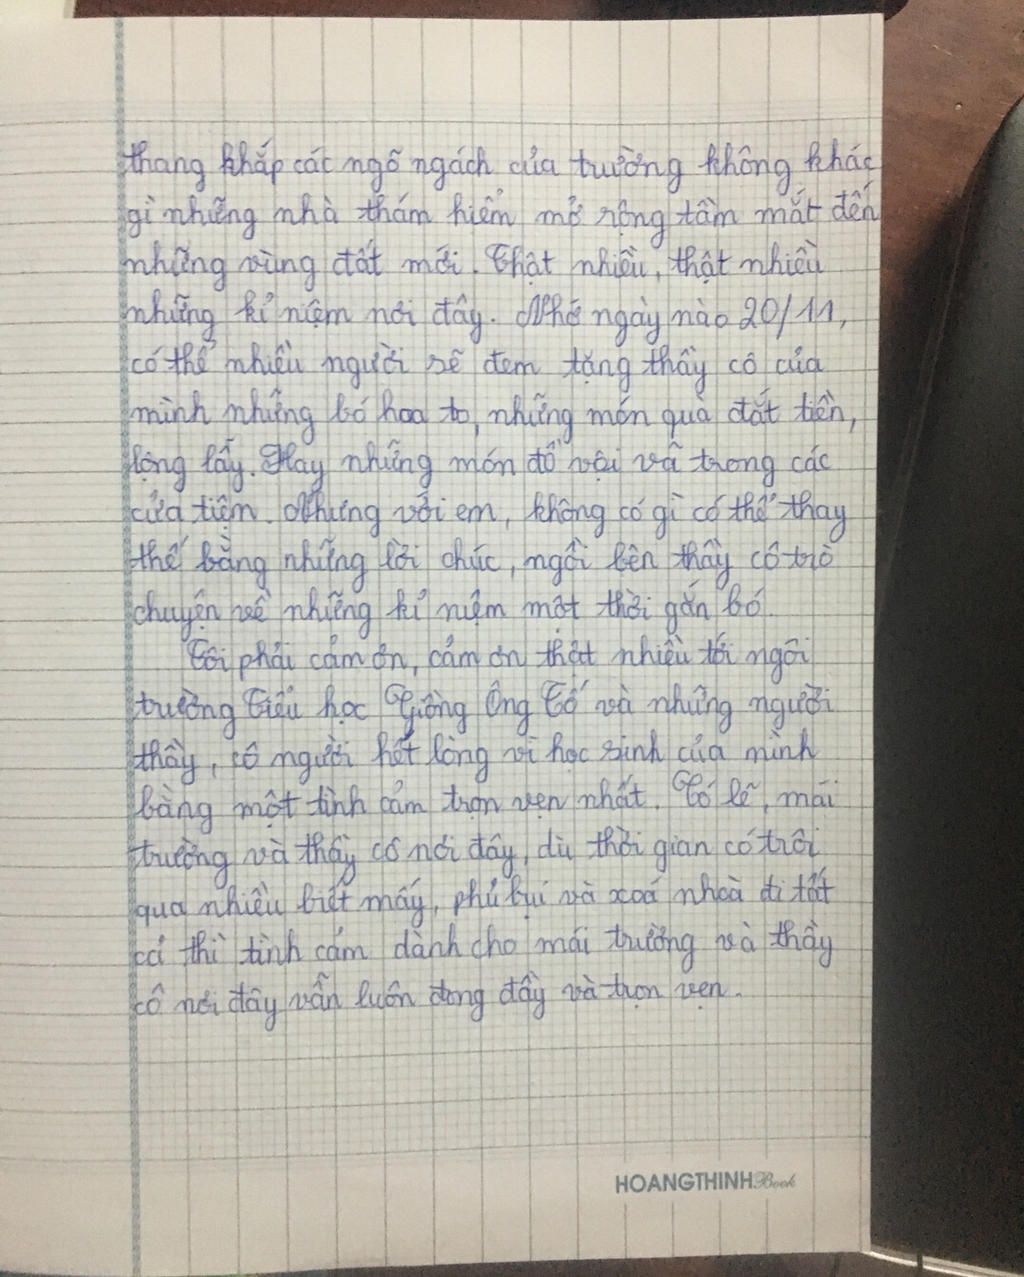 thang khắp các ngõ ngách của trường không khác
gì những nhà thám hiểm mở rộng tầm mắt đến
những vùng đất mới. Thật nhiều, thật nhiều
những kỉ niệm nơi đây. Nhớ ngày nào 20/11,
có thể nhiều người sẽ đem tặng thầy cô của
mình những bó hoa to, những món quà đắt tiền,
lộng lẫy. Hay những món đồ vội vã trong các
cửa tiệm. Nhưng với em, không có gì có thể thay
thế bằng những lời chúc, ngồi bên thầy cô trò
chuyện về những kỉ niệm một thời gắn bó.
Tôi phải cảm ơn, cảm ơn thật nhiều tới ngôi
trường Tiểu học Giồng Ông Tố và những người
thầy, cô người hết lòng vì học sinh của mình
bằng một tình cảm trọn vẹn nhất. Có lẽ, mái
trường và thầy cô nơi đây, dù thời gian có trôi
qua nhiều biết mấy, phủ bụi và xoá nhoà đi tất
cả thì tình cảm dành cho mái trường và thầy
cô nơi đây vẫn luôn đong đầy và trọn vẹn.
HOANGTHINH Book